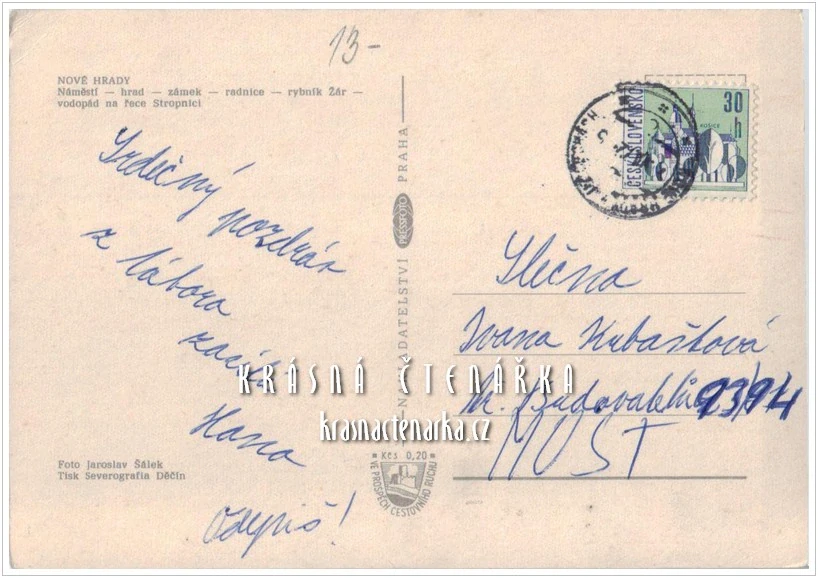 13-
NOVÉ HRADY
Náměstí — hrad — zámek — radnice — rybník Žár —
vodopád na řece Stropnici
Srdečný pozdrav
z tábora
zasílá
Hana
Odepiš!
Foto Jaroslav Šálek
Tisk Severografia Děčín
NADATELSTVÍ PRESSFOTO PRAHA
Kčs 0,20
VE PROSPĚCH CESTOVNÍHO RUCHU
ČESKOSLOVENSKO
30
h
KOŠICE
Slečna
Ivana Kubaštová
93/94
MOST
KRÁSNÁ ČTENÁŘKA
krasnactenarka.cz